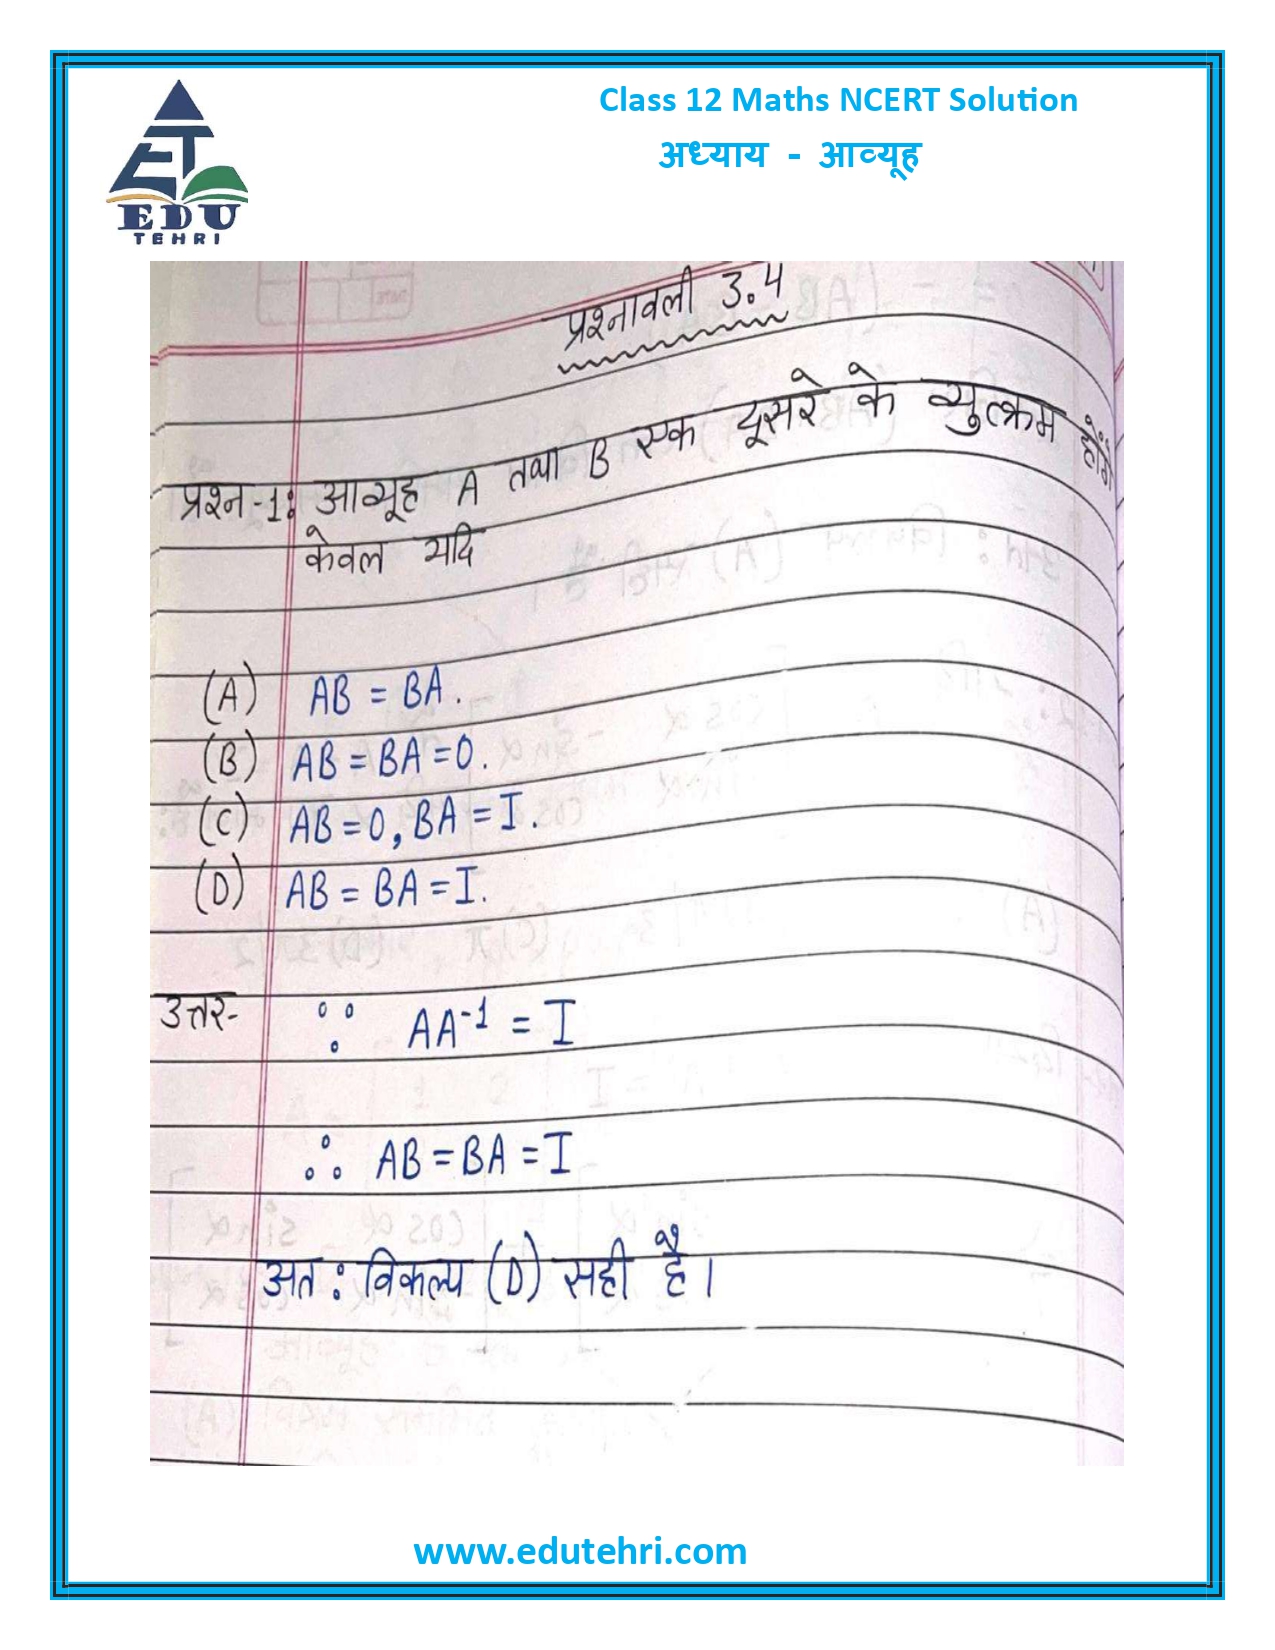 Class 12 Maths NCERT Solution
अध्याय - आव्यूह
EDU
TEHRI
प्रश्नावली 3.4
प्रश्न-1: आव्यूह A तथा B एक दूसरे के व्युत्क्रम होंगे
केवल यदि
(A) AB = BA.
(B) AB = BA = 0.
(C) AB = 0, BA = I.
(D) AB = BA = I.
उत्तर- ∵ AA⁻¹ = I
∴ AB = BA = I
अत: विकल्प (D) सही है।
www.edutehri.com